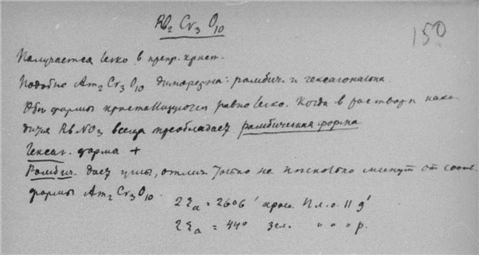 Rb₂ Cr₃ O₁₀
150
Получается легко в прекр. крист.
Подобно Am₂ Cr₃ O₁₀ диморфна: ромбич. и гексагональна.
Обе формы кристаллизуются равно легко. Когда в растворе нахо-
дится RbNO₃ всегда преобладает ромбическая форма
Гексаг. форма +
Ромбич. дает углы, отлич. только на несколько минут от соотв.
формы Am₂ Cr₃ O₁₀.
2Ea = 2606' красн. Пл. о. ||
2Ea = 440 зел.